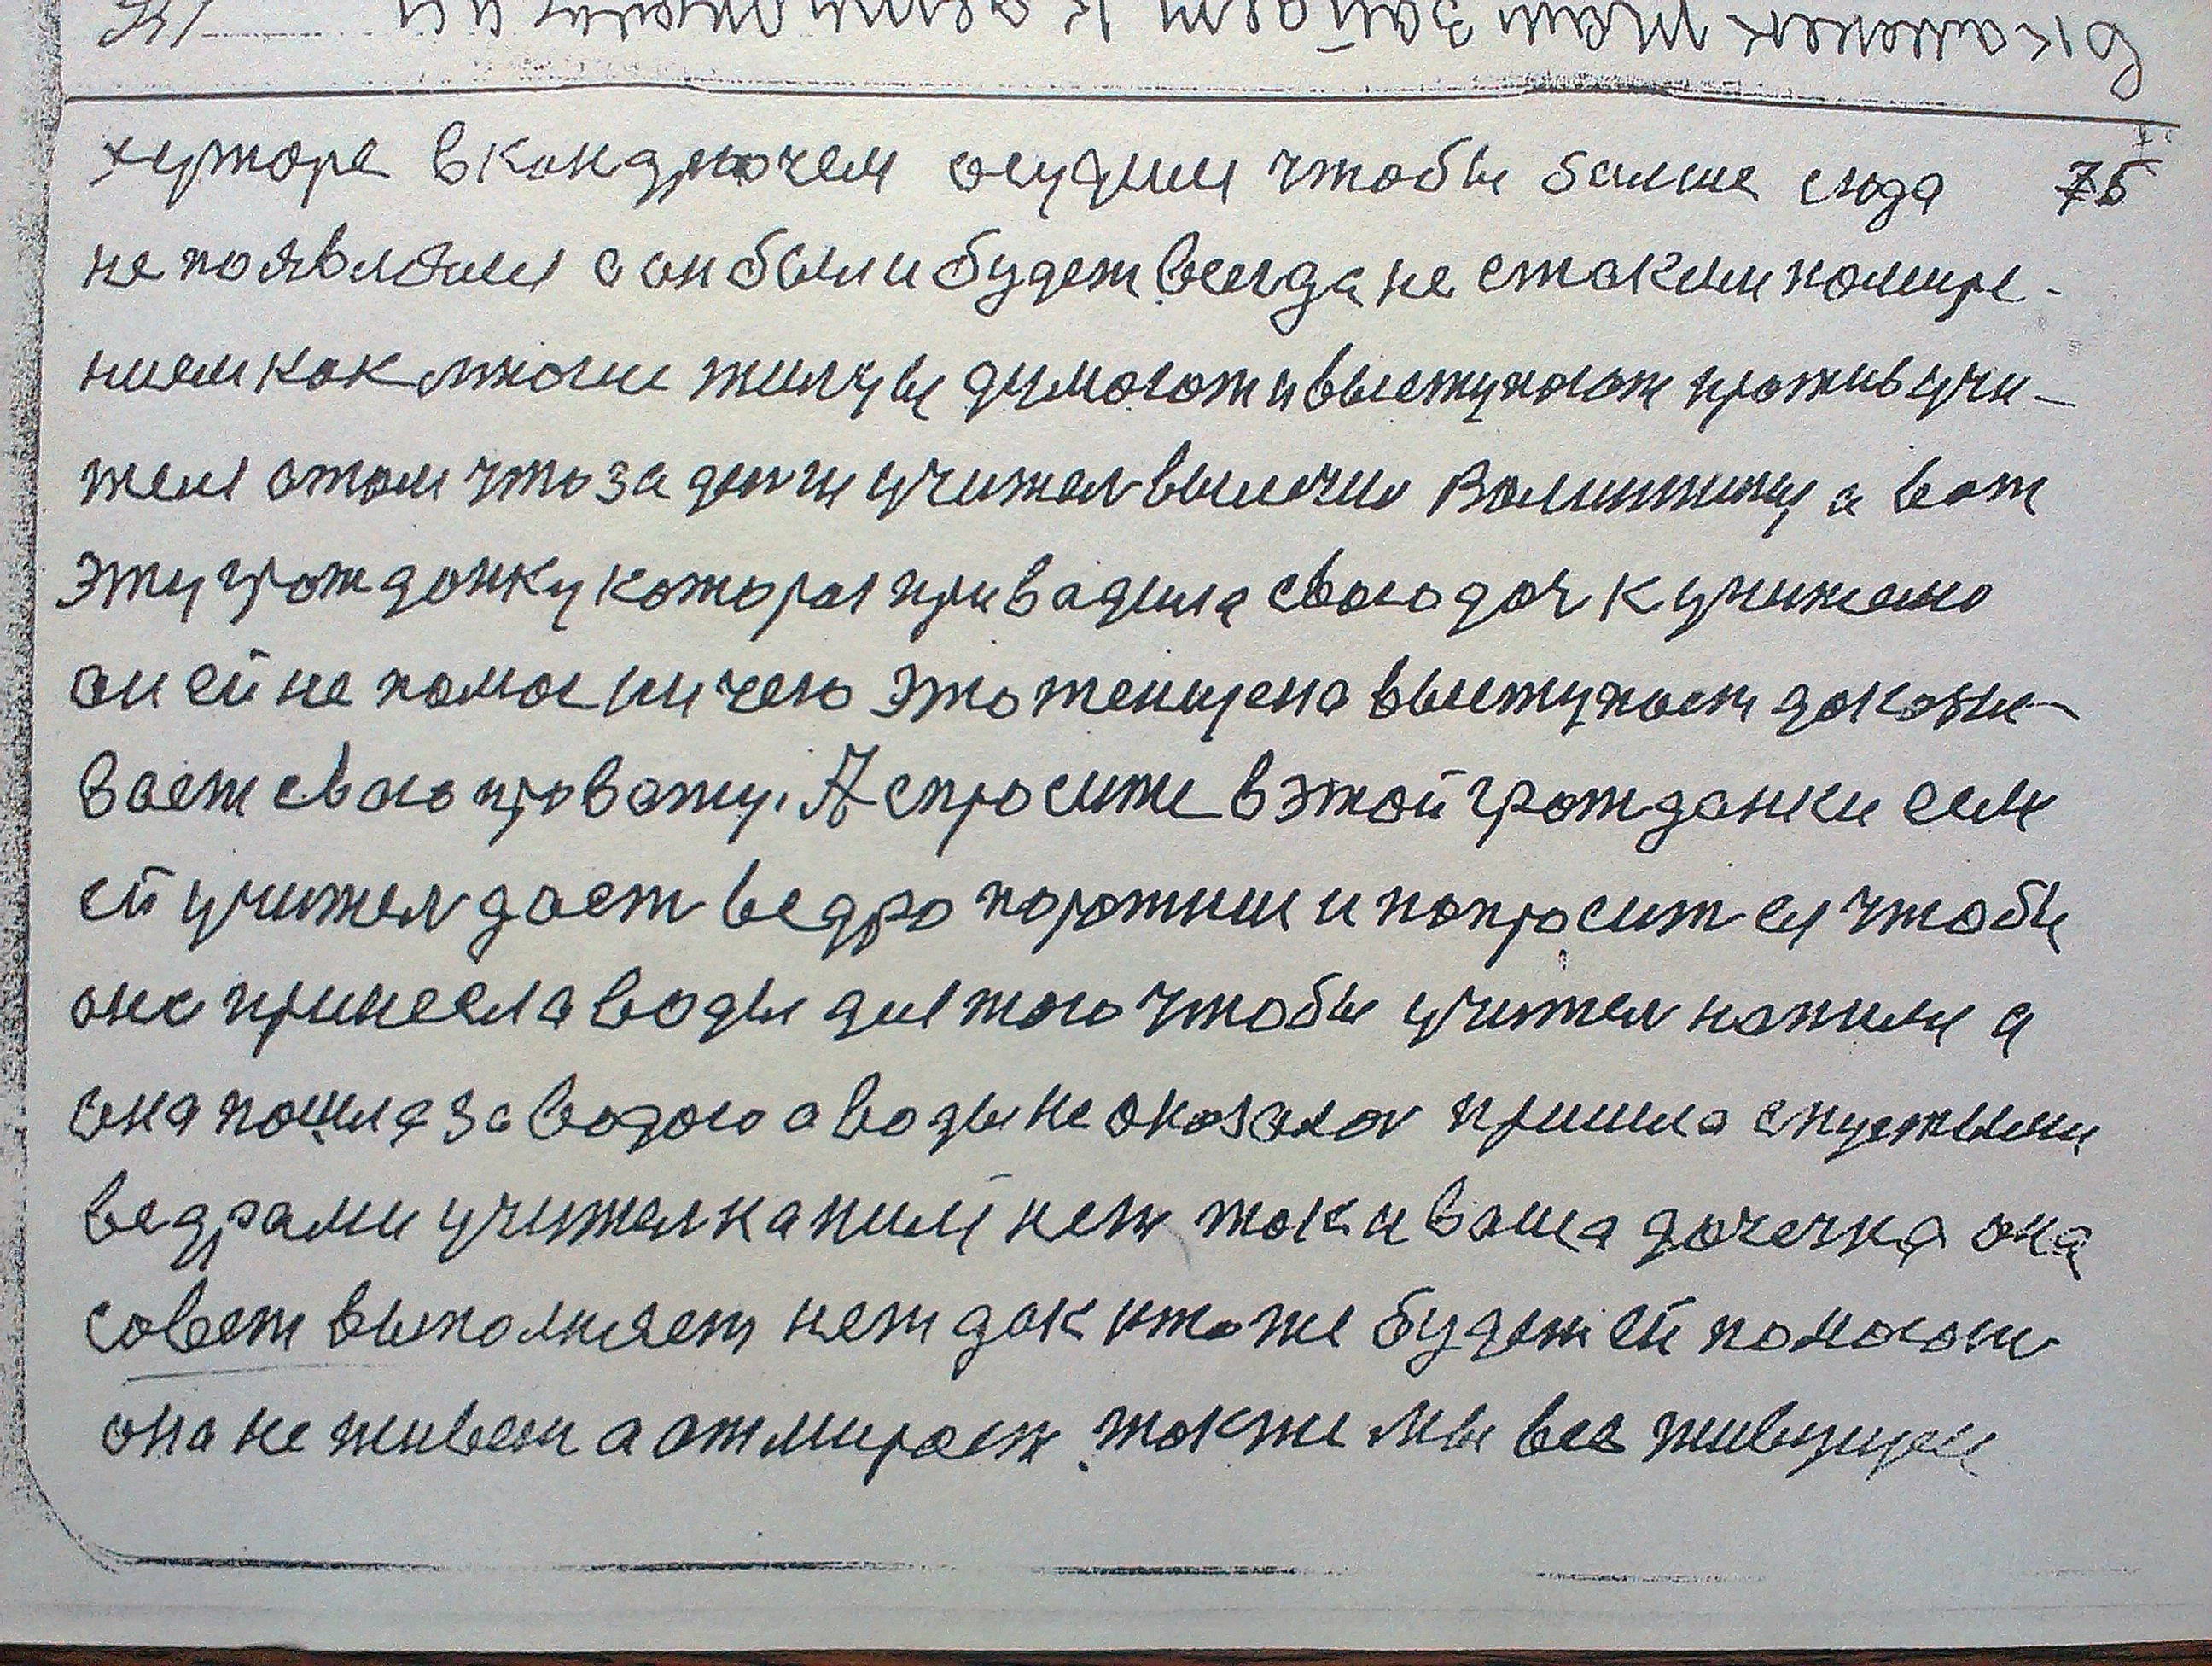 хуторе в кондрючем осудили чтобы балше сюда 75
не появлялся а он был и будет всегда не стаким намире-
нием как многие жилцы думогот и выступогот против учи-
теля отом что за денги учител вылечил Валинтину а вот
эту гротдонку которая привадила свого доч к учителю
он ей не помог ничего это тенщена выступает доказы-
вает свого провоту. А спросите в этой гротдонки если
ей учител дает ведро поротнии и попросит ея чтобы
она принесла воды для того чтобы учител напился а
она пошла за водого а воды не оказалас пришла спустыми
ведрами учител напился нет так и ваша дочечка она
совет выполняет нет дак ктоже будет ей помогат
она не живет а отмирает. также мы все живущие